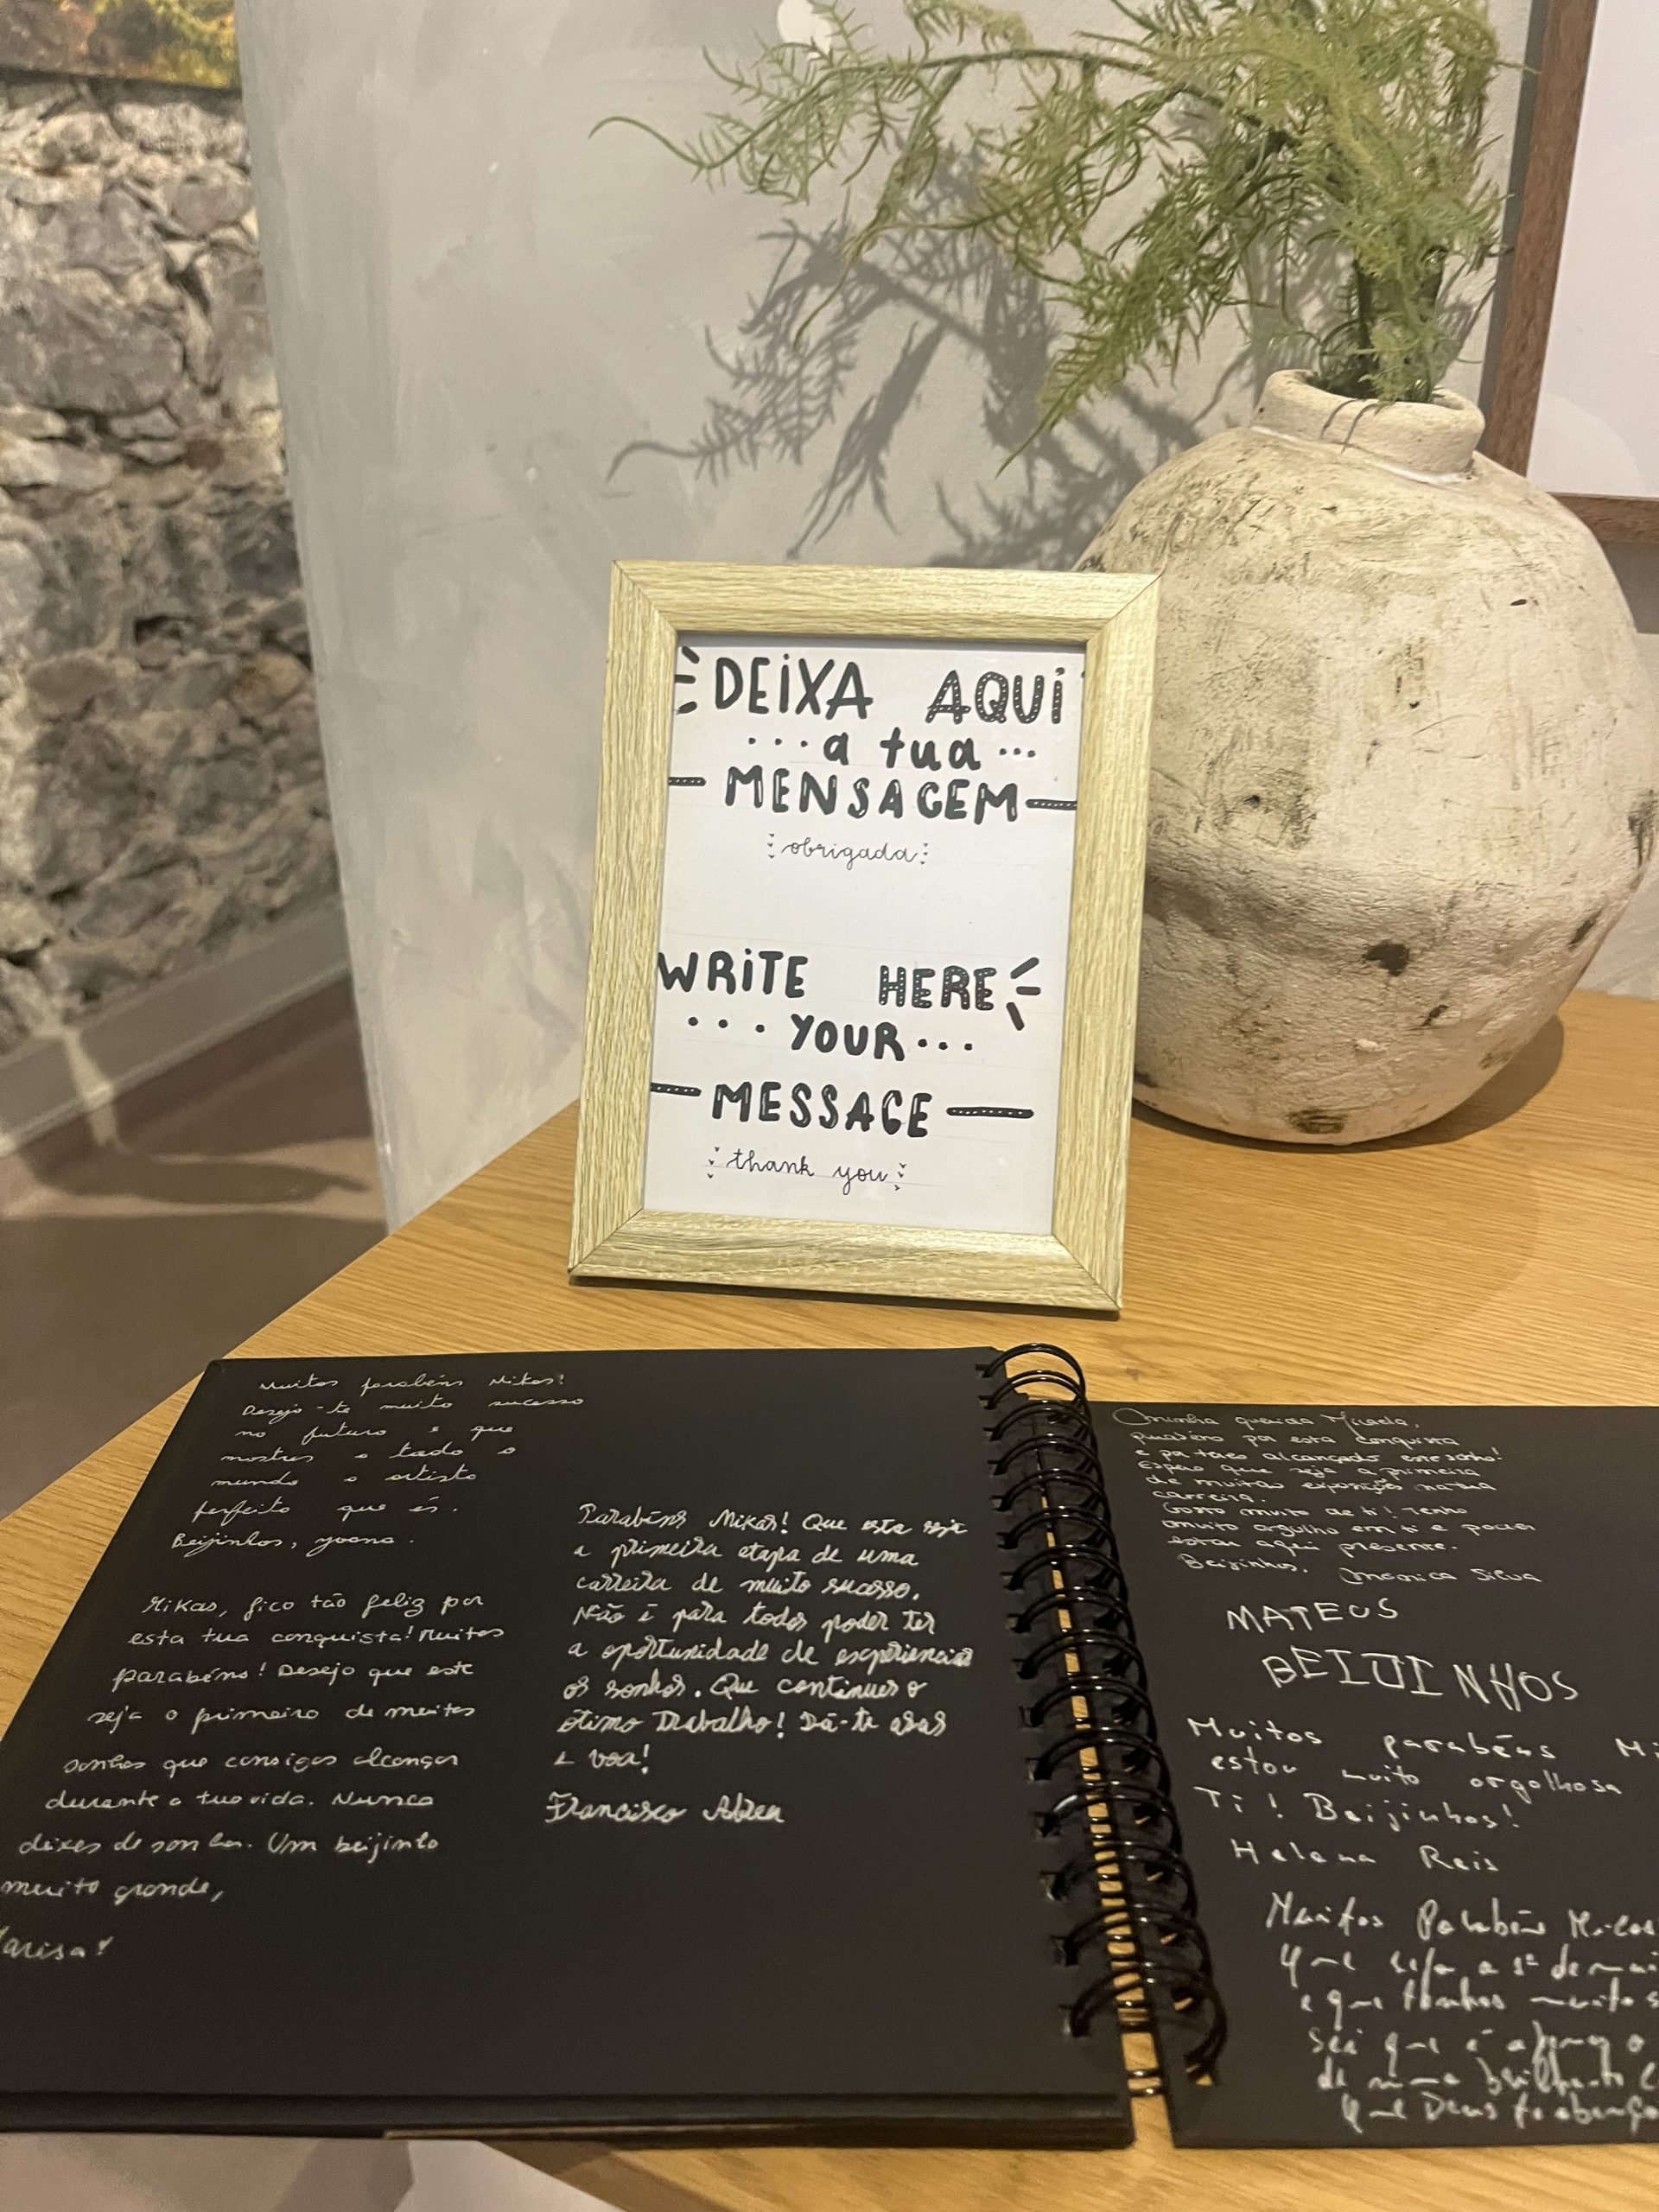 DEIXA AQUI
a tua
MENSAGEM
obrigada
WRITE HERE
YOUR
MESSAGE
thank you
Muitos parabéns Mikas!
Desejo-te muito sucesso
no futuro e que
mostres a todo o
mundo a artista
perfeita que és.
Beijinhos, Joana.
Mikas, fico tão feliz por
esta tua conquista! Muitos
parabéns! Desejo que este
seja o primeiro de muitos
sonhos que consigas alcançar
durante a tua vida. Nunca
deixes de sonhar. Um beijinho
muito grande,
Parabéns Mikas! Que esta seja
a primeira etapa de uma
carreira de muito sucesso.
Não é para todos poder ter
a oportunidade de experienciar
os sonhos. Que continues o
ótimo Trabalho! Dá-te asas
e voa!
Francisco Abreu
Minha querida
parabéns por esta conquista
e por teres alcançado este sonho!
Espero que seja a primeira
de muitas exposições na tua
carreira.
Gosto muito de ti! Tenho
muito orgulho em ti e poder
estar aqui presente.
Beijinhos, Monica Silva
MATEUS
BEIJINHOS
Muitos parabéns
estou muito orgolhosa
Ti! Beijinhos!
Helena Reis
Muitos Parabéns Micas
Que seja a 1ª de
e que tenhas muito
Sei que é
de uma brilhante
Que Deus te